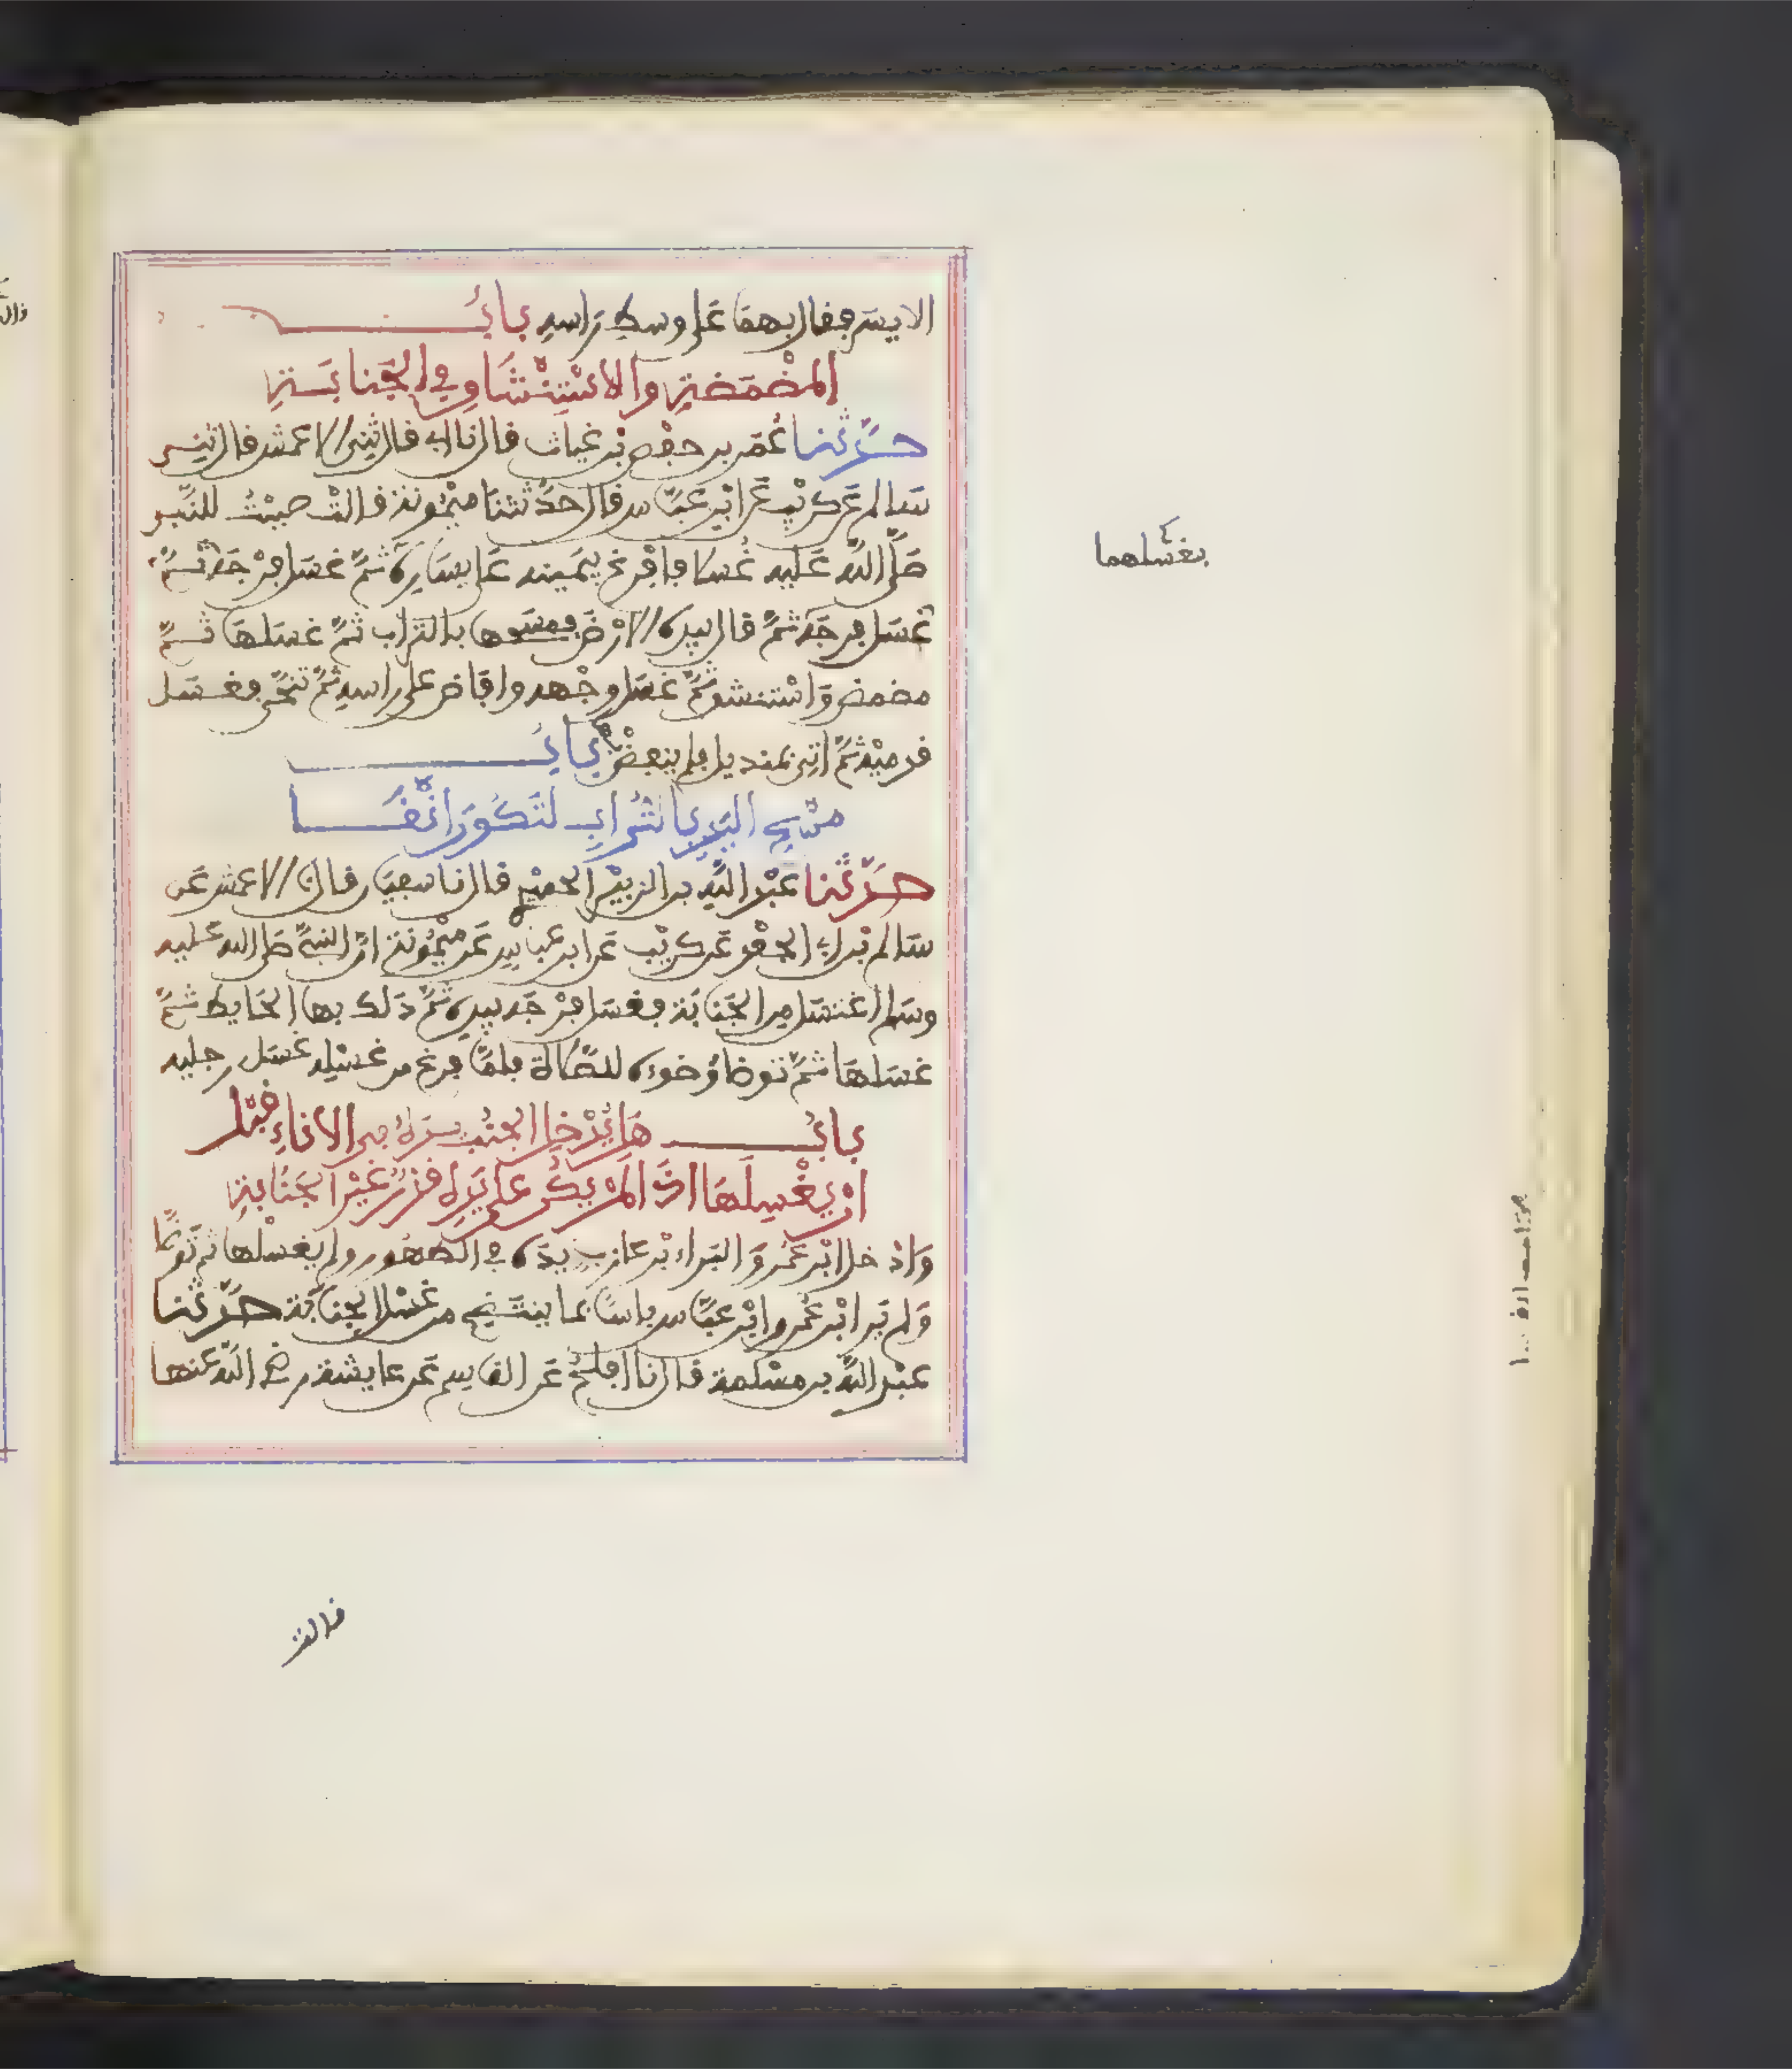 الايسر فقال بهما على وسط راسه باب
المضمضة والاستنشاق في الجنابة
حدثنا عمر بن حفص بن غياث قال نا ابي قال ثني الاعمش قال ثني
سالم عن كريب عن ابن عباس قال حدثتنا ميمونة قالت صببت للنبي
صلى الله عليه غسلا فافرغ بيمينه على يساره ثم غسل فرجه ثم
غسل فرجه ثم قال بيده الارض فمسحها بالتراب ثم غسلها ثم
مضمض واستنشق ثم غسل وجهه وافاض على راسه ثم تنحى فغسل
قدميه ثم اتي بمنديل فلم ينفض بها باب
مسح اليد بالتراب لتكون انقا
حدثنا عبد الله بن الزبير الحميدي قال نا سفيان قال نا الاعمش عن
سالم بن ابي الجعد عن كريب عن ابن عباس عن ميمونة ان النبي صلى الله عليه
وسلم اغتسل من الجنابة فغسل فرجه بيده ثم دلك بها الحايط ثم
غسلها ثم توضا وضوءه للصلاة فلما فرغ من غسله غسل رجليه
باب هل يدخل الجنب يده في الاناء قبل
ان يغسلها اذا لم يكن على يده قذر غير الجنابة
وادخل ابن عمر والبراء بن عازب يده في الطهور ولم يغسلها ثم توضا
ولم ير ابن عمر وابن عباس باسا بما ينتضح من غسل الجنابة حدثنا
عبد الله بن مسلمة قال نا افلح عن القاسم عن عايشة رضي الله عنها
يغسلهما
قالت